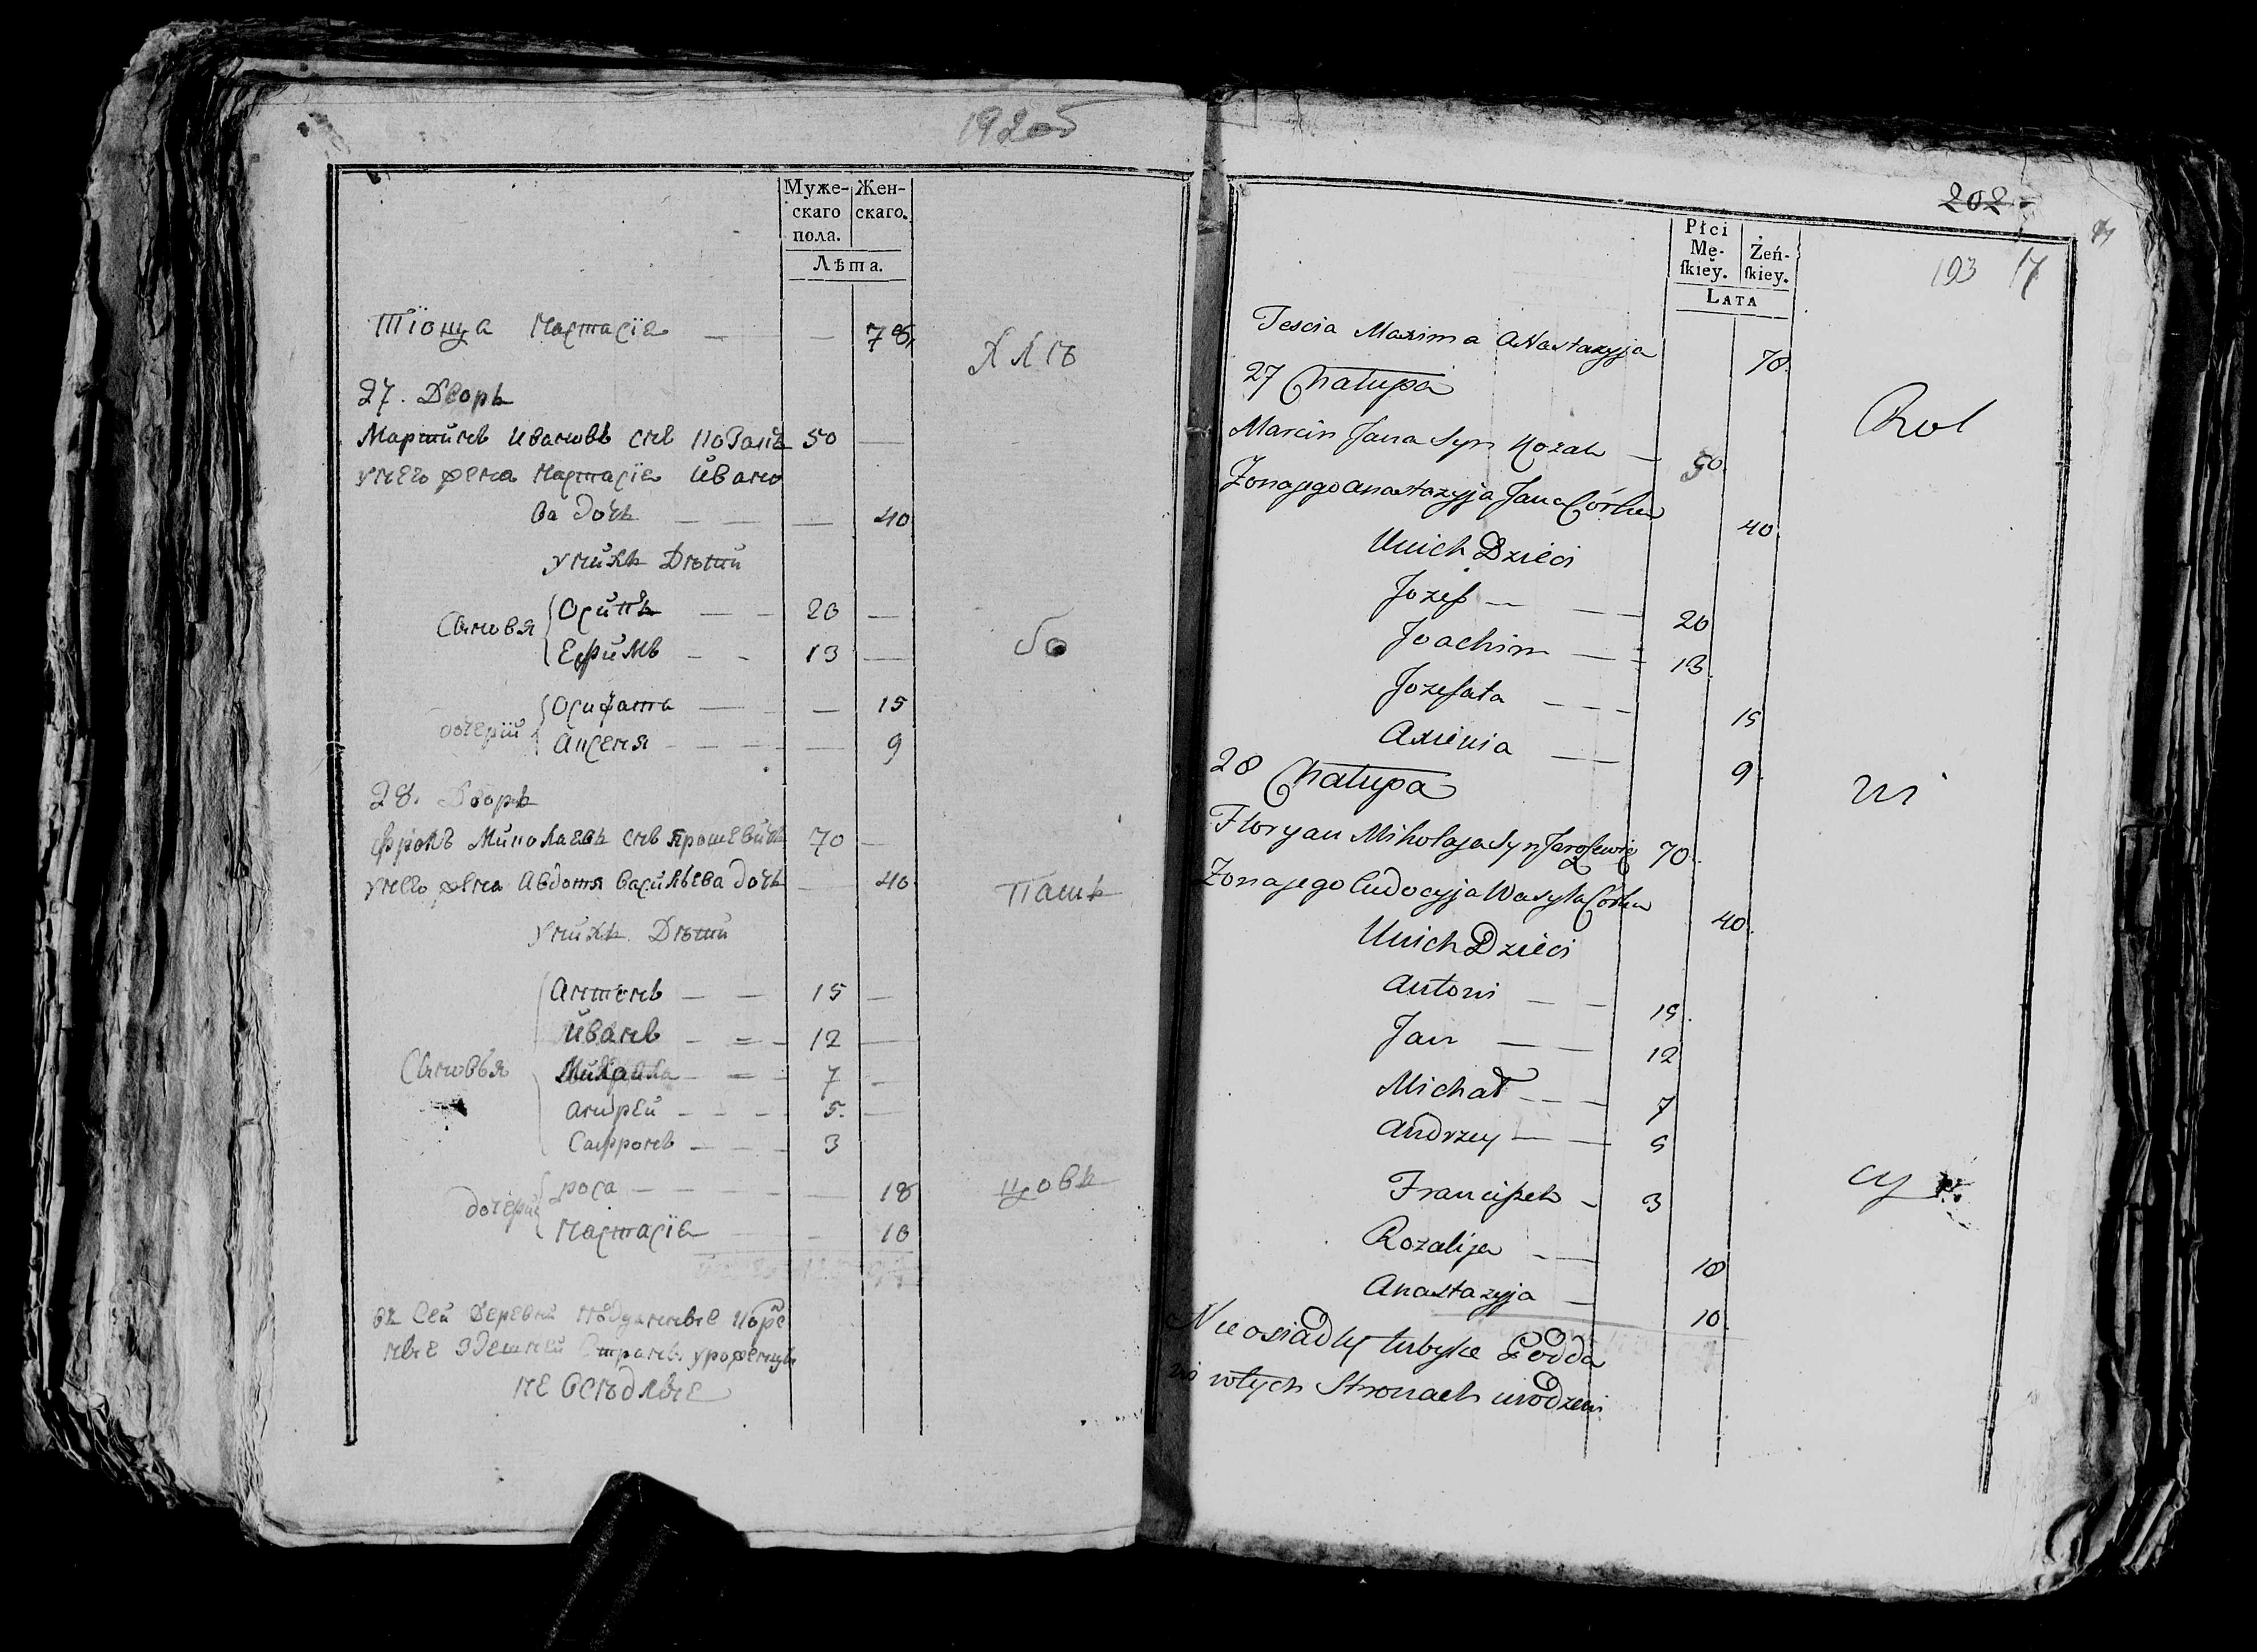 192об
Муже- Жен-
скаго скаго.
пола.
Лѣта.
Тіоща Настасіа — — 78
Хлѣ
27. Дворъ
Мартинъ Ивановъ снъ Козакъ 50 —
унего жена Настасіа Ивано
ва дочь — — — 40
унихъ Дѣтий
Сыновя Осипъ — — 20 —
Ефимъ — — 13 —
бо
дочерий Осифата — — — 15
Аксеня — — — — 9
28. Дворъ
Николаевъ снъ Ярошевичъ 70 —
унего жена Авдотя Васильева дочь — 40
Пашъ
унихъ Дѣтий
Антонъ — — 15 —
Иванъ — — 12 —
Сыновья Михайла — — 7 —
Андрей — — 5 —
Сафронъ — — 3
дочерий роса — — — — 18
цовъ
Настасіа — — 10
въ Сей Деревни подданные Коре
нные Здешней Стране уроженцы
не Оседлые
202
193 17
Płci
Mę- Żeń-
ſkiey. ſkiey.
LATA
Tescia Maxima Anastazyja 78
27 Chałupa
Rol
Marcin Jana Syn Kozak — 50
Zona jego Anastazyja Jana Córka 40
Unich Dzieci
Jozef — — 20
Joachim — — 13
Jozefata — — — 15
Axienia — — 9
28 Chałupa
ni
Floryan Mikołaja Syn Jaroſzewicz 70
Zona jego Eudocyja Wasyla Córka 40
Unich Dzieci
Antoni — — 15
Jan — — 12
Michał — — — 7
Andrzey — — 5
cy
Franciſzek — 3
Rozalija — — 18
Anastazyja — 10
Nieosiadły tubyłce Podda
ni wtych Stronach urodzeni